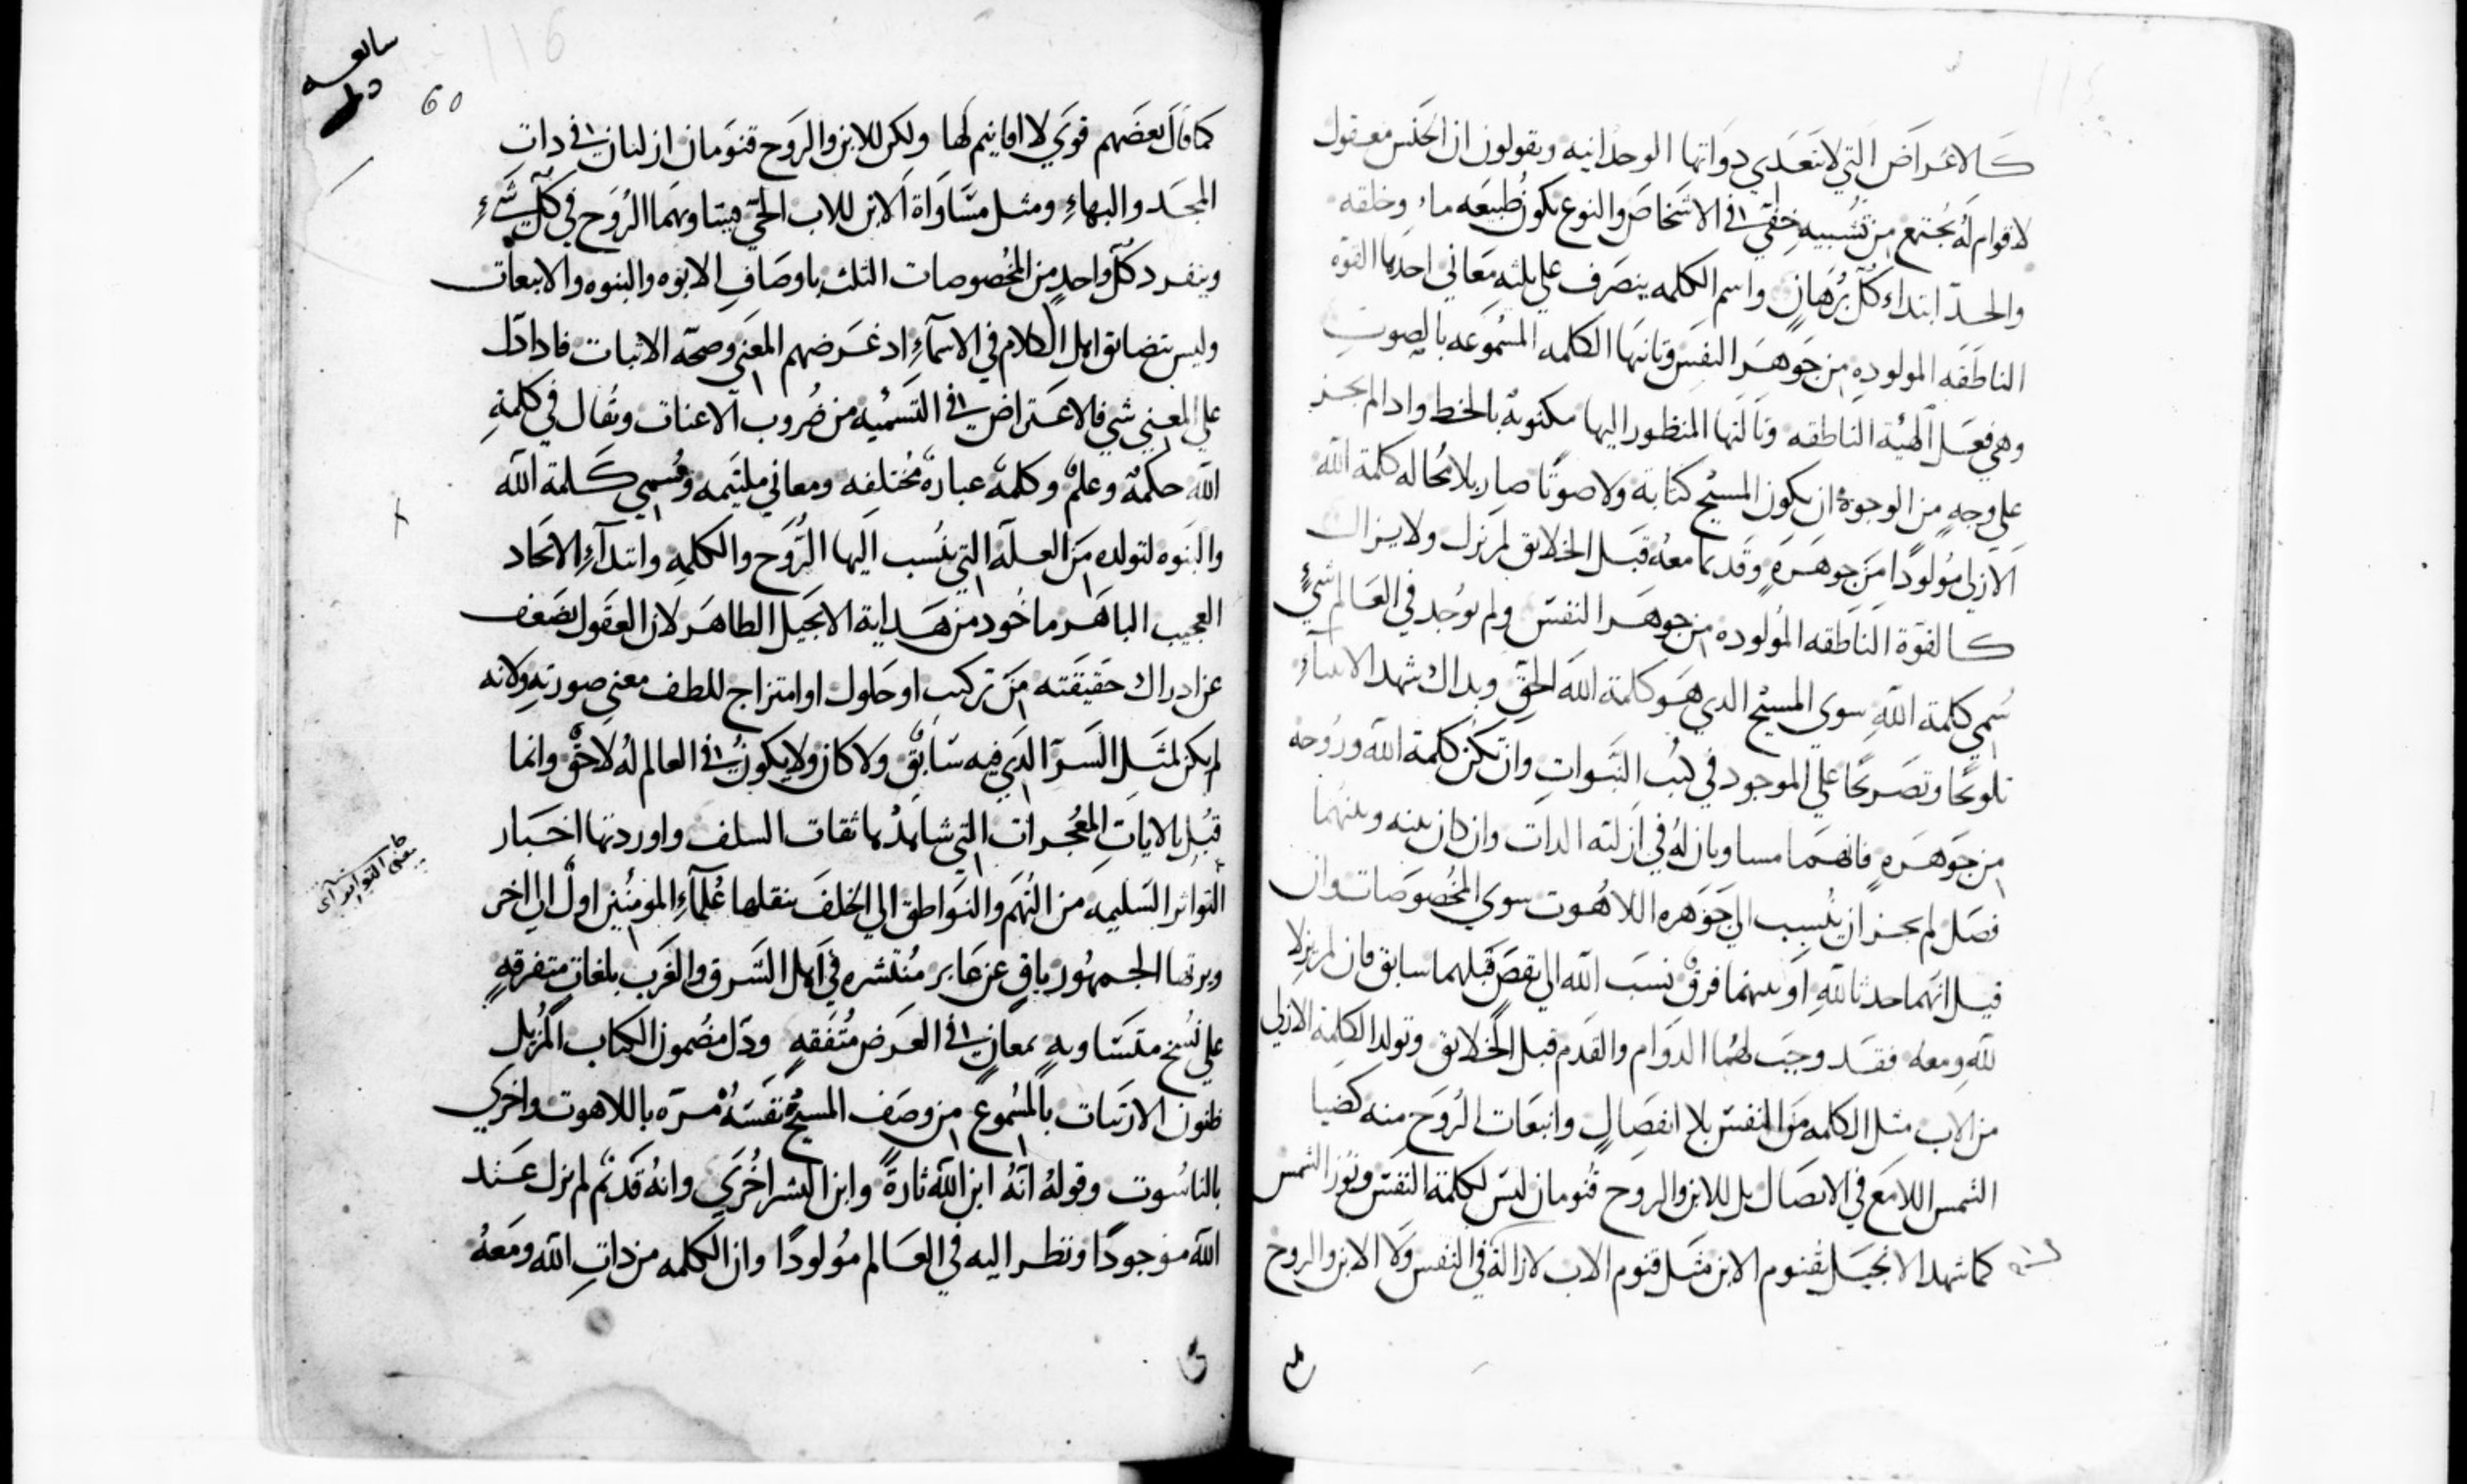 كالاعراض التي لا تتعدي دواتها الوحدانيه ويقولون ان الجنس معقول
لا قوام له يجتمع من تشبيه خفي في الاشخاص والنوع يكون طبيعه ما وخلقه
والحد ابتداء كل برهان واسم الكلمه ينصرف علي ثلثه معاني احدها القوه
الناطقه المولوده من جوهر النفس وثانيها الكلمه المسموعه بالصوت
وهي فعل الهيئة الناطقه وثالثها المنظور اليها مكتوبة بالخط وادا لم يجز
علي وجه من الوجوه ان يكون المسيح كتابة ولا صوتا صار بلا محاله كلمة الله
الازلي مولودا من جوهره وقديما معه قبل الخلائق لم يزل ولا يزال
كالقوة الناطقه المولوده من جوهر النفس ولم يوجد في العالم شيء
سمي كلمة الله سوي المسيح الدي هو كلمة الله الحق وبداك شهد الانبياء
تلويحا وتصريحا علي الموجود في كتب النبوات وان تكن كلمة الله وروحه
من جوهره فانهما مساويان له في ازلية الدات وان كان بينه وبينهما
فصل لم يجز ان ينسب الي جوهره اللاهوت سوي المخصوصات وان
قيل انهما حدثا لله او بينهما فرق نسب الله الي نقص قبلهما سابق فان لم يزلا
لله ومعه فقد وجب لهما الدوام والقدم قبل الخلائق وتولد الكلمة الازلي
من الاب مثل الكلمه من النفس بلا انفصال وانبعاث الروح منه كضيا
الشمس اللامع في الاتصال بل للابن والروح قنومان ليس لكلمة النفس ونور الشمس
كما شهد الانجيل بقنوم الابن مثل قنوم الاب لازالة في النفس ولا الابن والروح
60
116
كما قال بعضهم قوي لا اقانيم لها ولكن للابن والروح قنومان ازليان في دات
المجد والبهاء ومثل مساواة الابن للاب الحي يساويهما الروح في كل شيء
وينفرد كل واحد من المخصوصات الثلث باوصاف الابوه والبنوه والانبعاث
وليس يتضايق اهل الكلام في الاسماء اد غرضهم المعني وصحة الاثبات فادا دل
علي المعني شي فالاعتراض في التسميه من ضروب الاعنات ويقال في كلمة
الله حكمة وعلم وكلمة عبارة مختلفه ومعاني ملتيمه وسمي كلمة الله
والبنوه لتولده من العلة التي ينسب اليها الروح والكلمه وابتداء الاتحاد
العجيب الباهر ماخود من هداية الانجيل الطاهر لان العقول تضعف
عن ادراك حقيقته من تركيب او حلول او امتزاج للطف معني صورته ولانه
لم يكن لمثل السر الدي فيه سابق ولا كان ولا يكون في العالم له لاحق وانما
قبل بالايات المعجزات التي شاهدها ثقات السلف واوردتها اخبار
التواتر السليمه من التهم والنواطق الي الخلف ينقلها علماء المومنين اول الي اخر
ويرتضا الجمهور باق عن غابر منتشره في اهل الشرق والغرب بلغات متفرقه
علي نسخ متساويه بمعان في الغرض متفقه ودل مضمون الكتاب المزيل
ظنون الارتياب بالمسموع من وصف المسيح نفسه مره باللاهوت واخري
بالناسوت وقوله انه ابن الله تارة وابن البشر اخري وانه قديم لم يزل عند
الله موجودا ونظر اليه في العالم مولودا وان الكلمه من دات الله ومعه